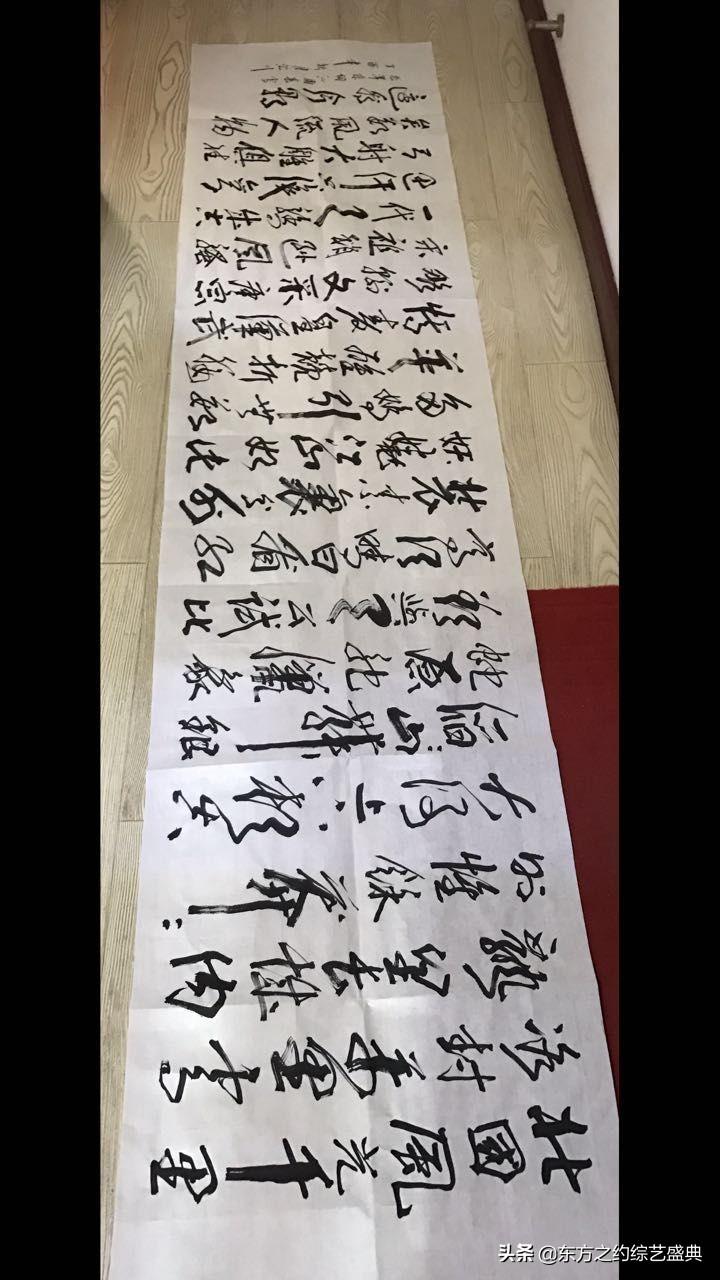 北國風光千里
冰封萬里雪
飘望长城内
外惟餘莽莽
大河上下頓失
滔滔山舞銀
蛇原馳蠟象
欲與天公試比
高須晴日看红
裝素裹分外
妖嬈江山如此
多嬌引無数
英雄競折腰
惜秦皇漢武
略輸文采唐宗
宋祖稍遜風騷
一代天驕成吉
思汗只識彎
弓射大雕俱往
矣数風流人物
還看今朝
丁酉年
头条 @东方之约综艺盛典